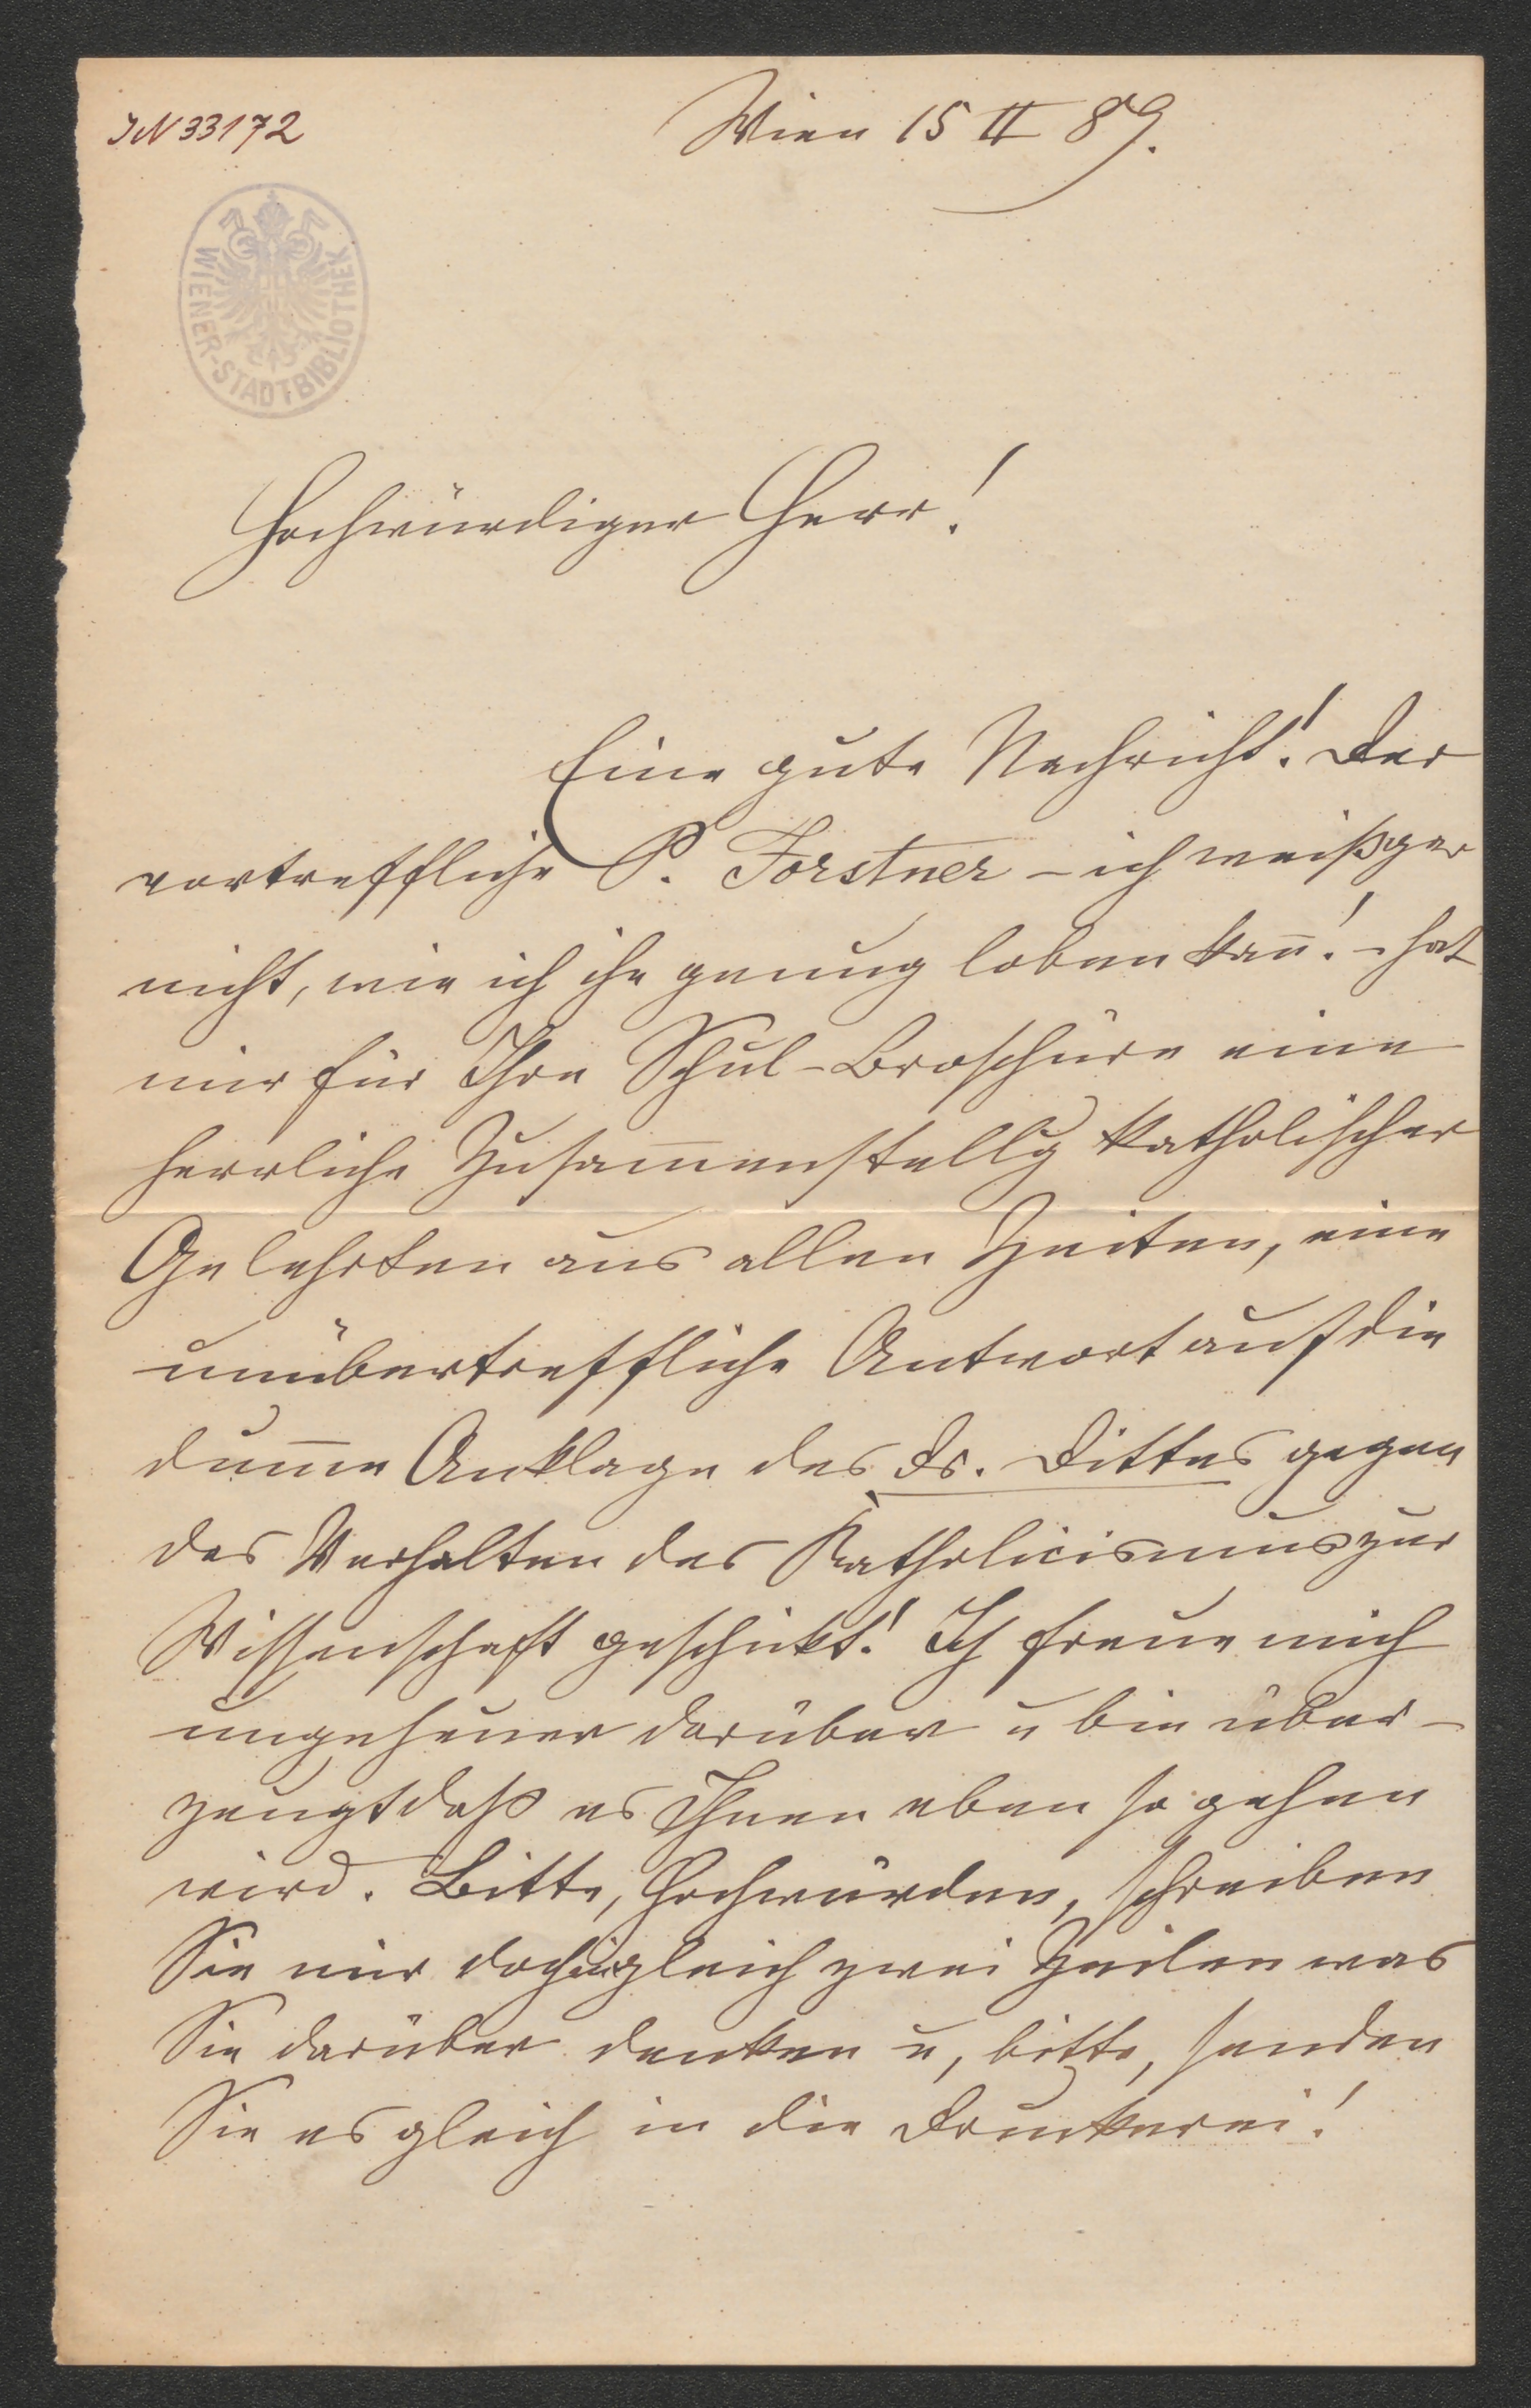 IN 33172
Wien 15 II 89.
WIENER-STADTBIBLIOTHEK
Hochwürdiger Herr!
Eine gute Nachricht! Der
vortreffliche P. Forstner – ich weiß gar
nicht, wie ich ihn genug loben kan̄! – hat
mir für Ihre Schul-Broschüre eine
herrliche Zusam̄enstellg katholischer
Gelehrten aus allen Zeiten, eine
unübertreffliche Antwort auf die
dum̄e Anklage des Dr. Dittes gegen
das Verhalten des Katholicismus zur
Wissenschaft geschickt! Ich freue mich
ungeheuer darüber u bin über-
zeugt daß es Ihnen eben so gehen
wird. Bitte, Hochwürden, schreiben
Sie mir doch gleich zwei Zeilen was
Sie darüber denken u, bitte, senden
Sie es gleich in die Druckerei!